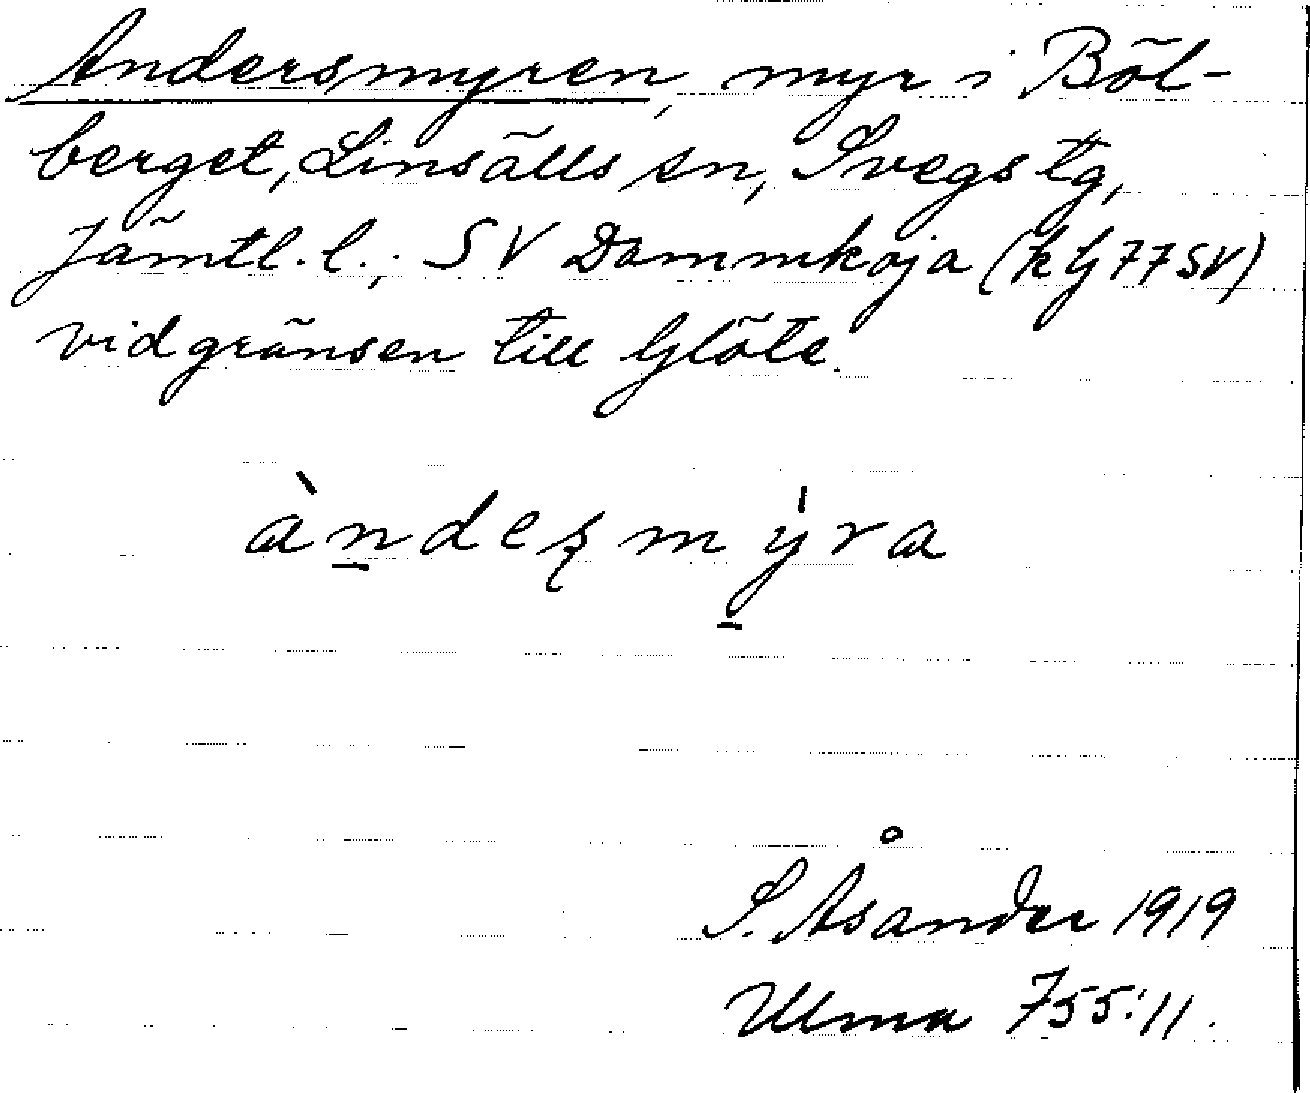 Andersmyren, myr i Böl-
berget, Linsälls sn, Svegs tg,
Jämtl. l.; SV Dammkoja (k Gj 77 SV)
vid gränsen till Glöte.
àndeʂmy̍ra
S. Åsander 1919
Ulma 755:11.